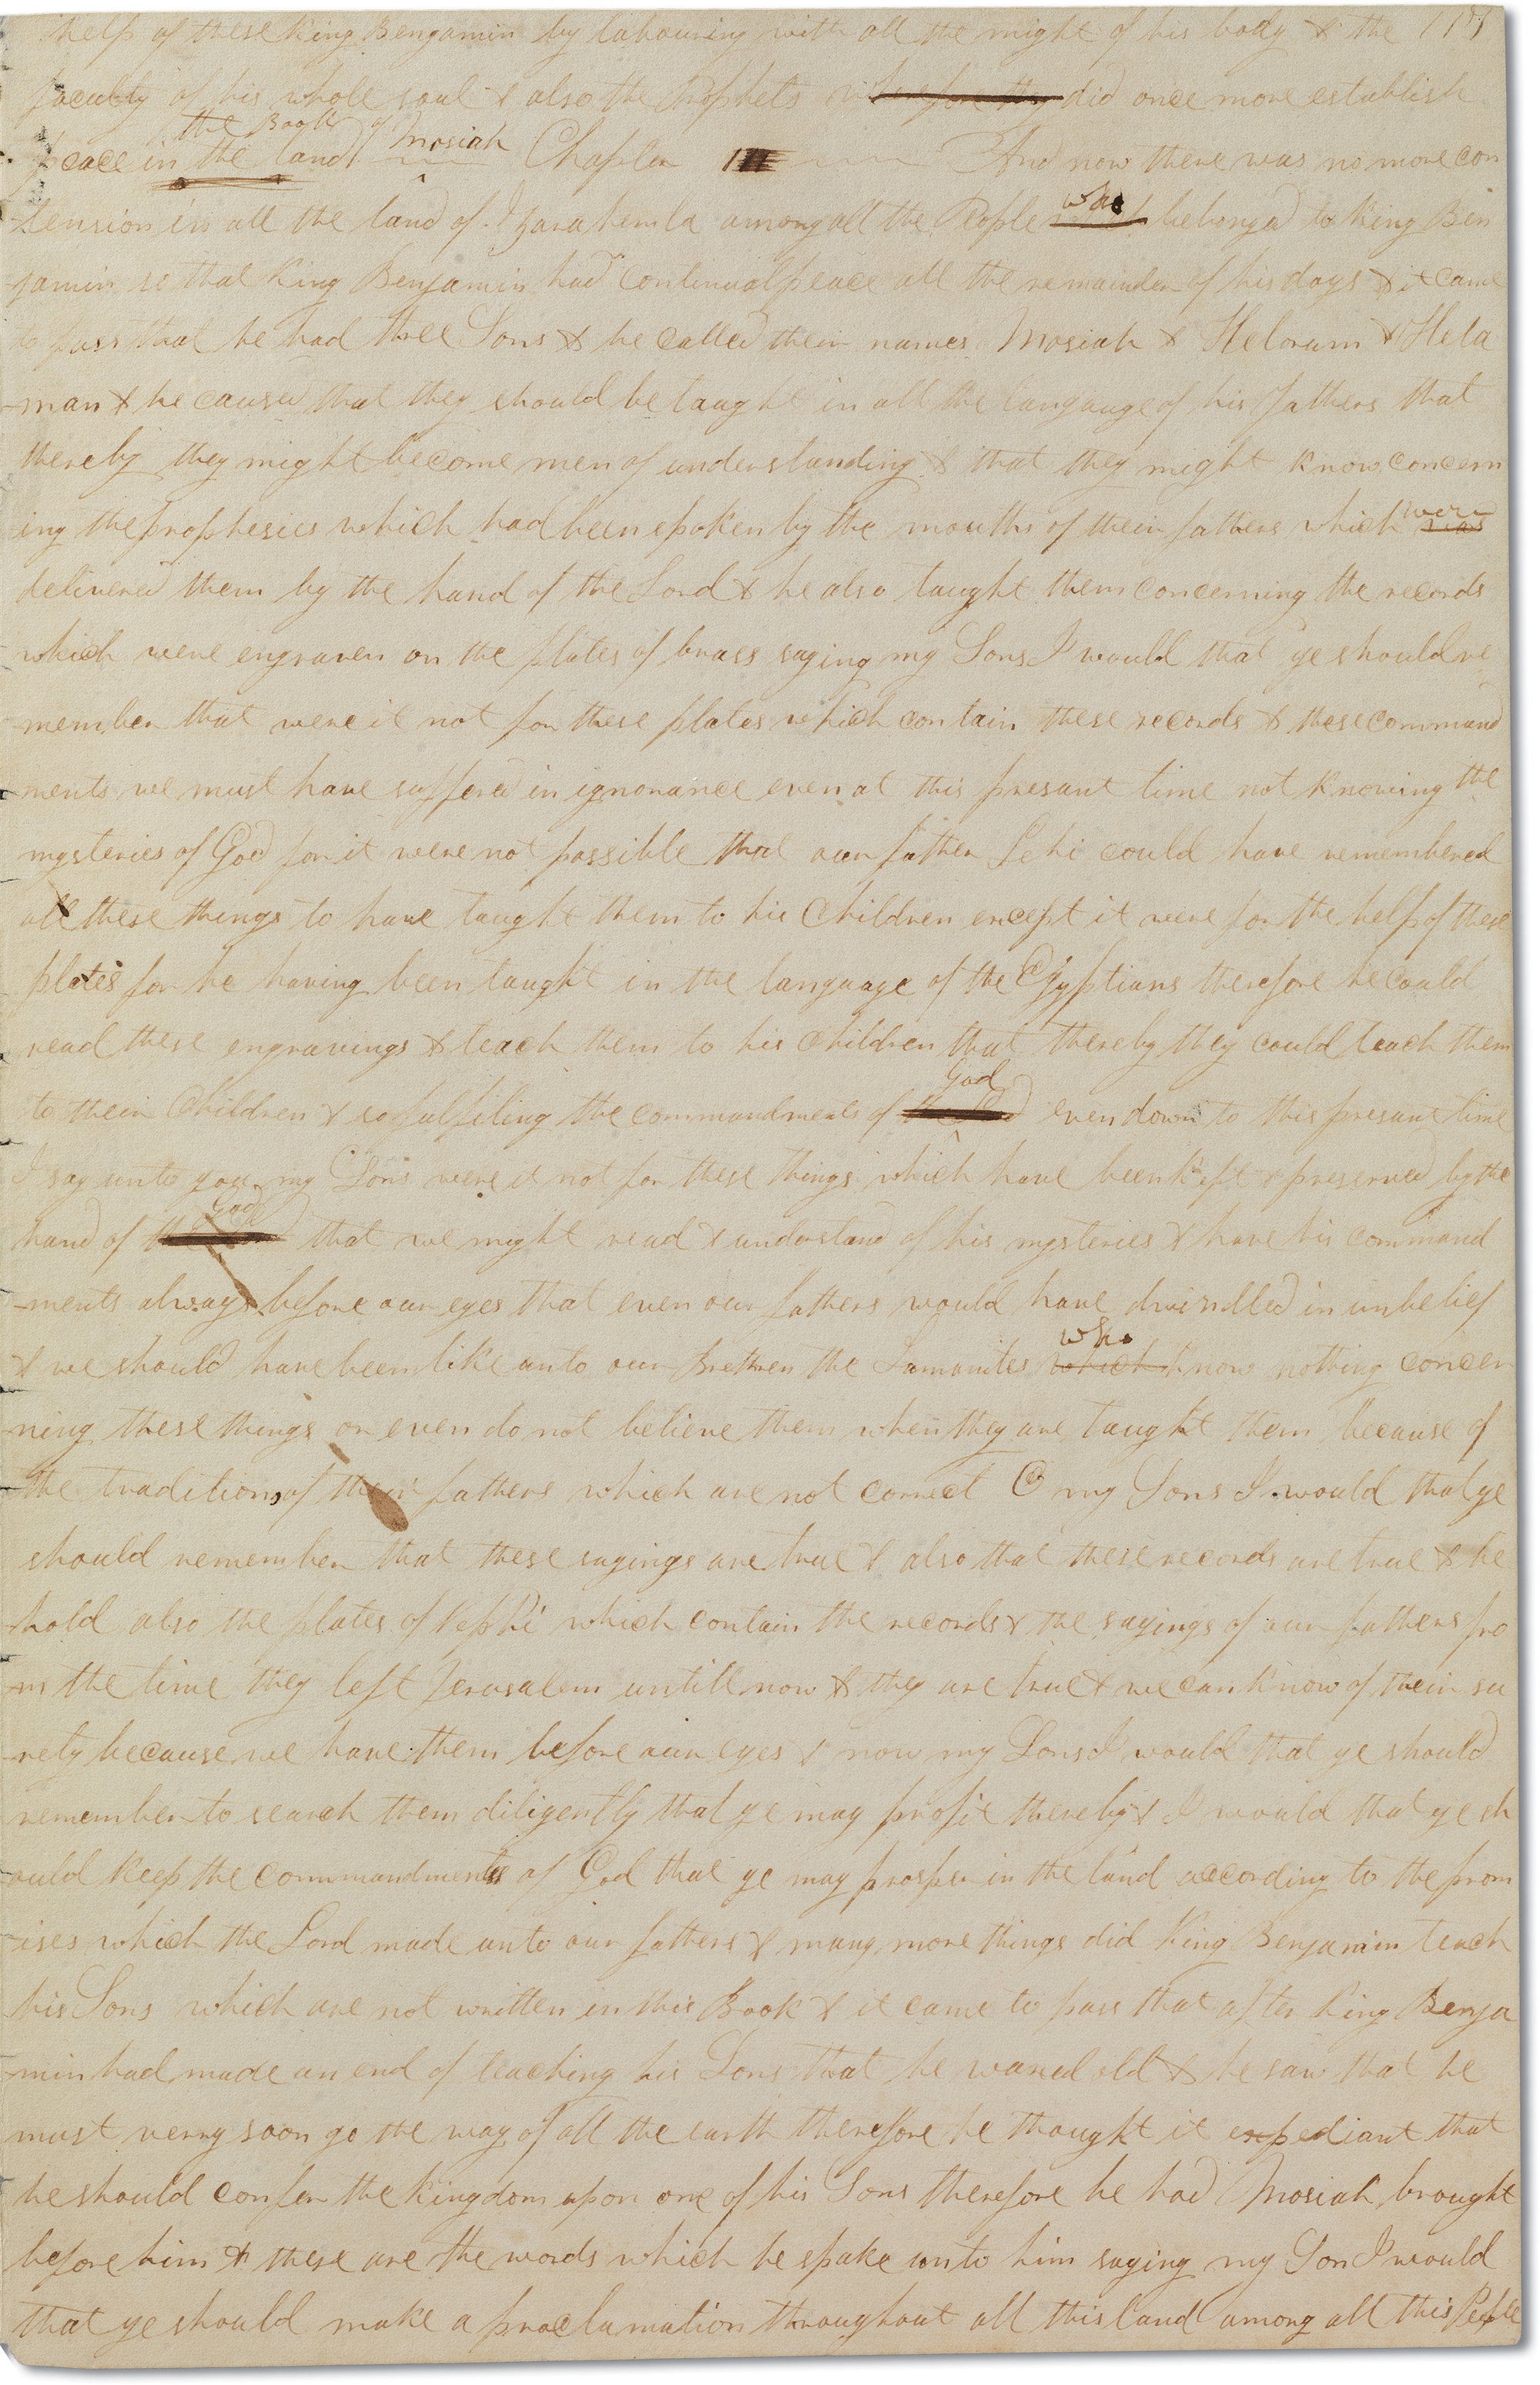 help of these King Benjamin by labouring with all the might of his body & the 117
faculty of his whole soul & also the Prophets wherefore they did once more establish
the Book of
peace in the land Mosiah Chapter III And now there was no more con
who
tension in all the land of Zarahemla among all the People which belonged to King Ben
jamin so that King Benjamin had continual peace all the remainder of his days & it came
to pass that he had three Sons & he called their names Mosiah & Helorum & Hela
-man & he caused that they should be taught in all the langauge of his fathers that
thereby they might become men of understanding & that they might know concern
were
ing the prophesies which had been spoken by the mouths of their fathers which was
delivered them by the hand of the Lord & he also taught them concerning the records
which were engraven on the plates of brass saying my Sons I would that ye should re
-member that were it not for these plates which contain these records & these command
-ments we must have suffered in ignorance even at this presant time not knowing the
mysteries of God for it were not possible that our father Lehi could have remembered
all these things to have taught them to his Children except it were for the help of these
plates for he having been taught in the language of the Egyptians therefore he could
read these engravings & teach them to his Children that thereby they could teach them
God
to their Children & so fulfiling the commandments of the Lord even down to this presant time
I say unto you my Sons were it not for these things which have been kept & preserved by the
God
hand of the Lord that we might read & understand of his mysteries & have his command
-ments always before our eyes that even our fathers would have dwindled in unbelief
who
& we should have been like unto our brethren the Lamanites which know nothing concer
-ning these things or even do not believe them when they are taught them because of
the traditions of their fathers which are not correct O my Sons I would that ye
should remember that these sayings are true & also that these records are true & be
-hold also the plates of Nephi which contain the records & the sayings of our fathers fro
-m the time they left Jerusalem untill now & they are true & we can know of their su
-rety because we have them before our eyes & now my Sons I would that ye should
remember to search them diligently that ye may profit thereby & I would that ye sh
ould keep the commandments of God that ye may prosper in the land according to the prom
-ises which the Lord made unto our fathers & many more things did King Benjamin teach
his Sons which are not written in this Book & it came to pass that after King Benja
-min had made an end of teaching his Sons that he waxed old & he saw that he
must verry soon go the way of all the earth therefore he thought it expediant that
he should confer the kingdom upon one of his Sons therefore he had Mosiah brought
before him & these are the words which he spake unto him saying my Son I would
that ye should make a proclamation throughout all this land among all this People